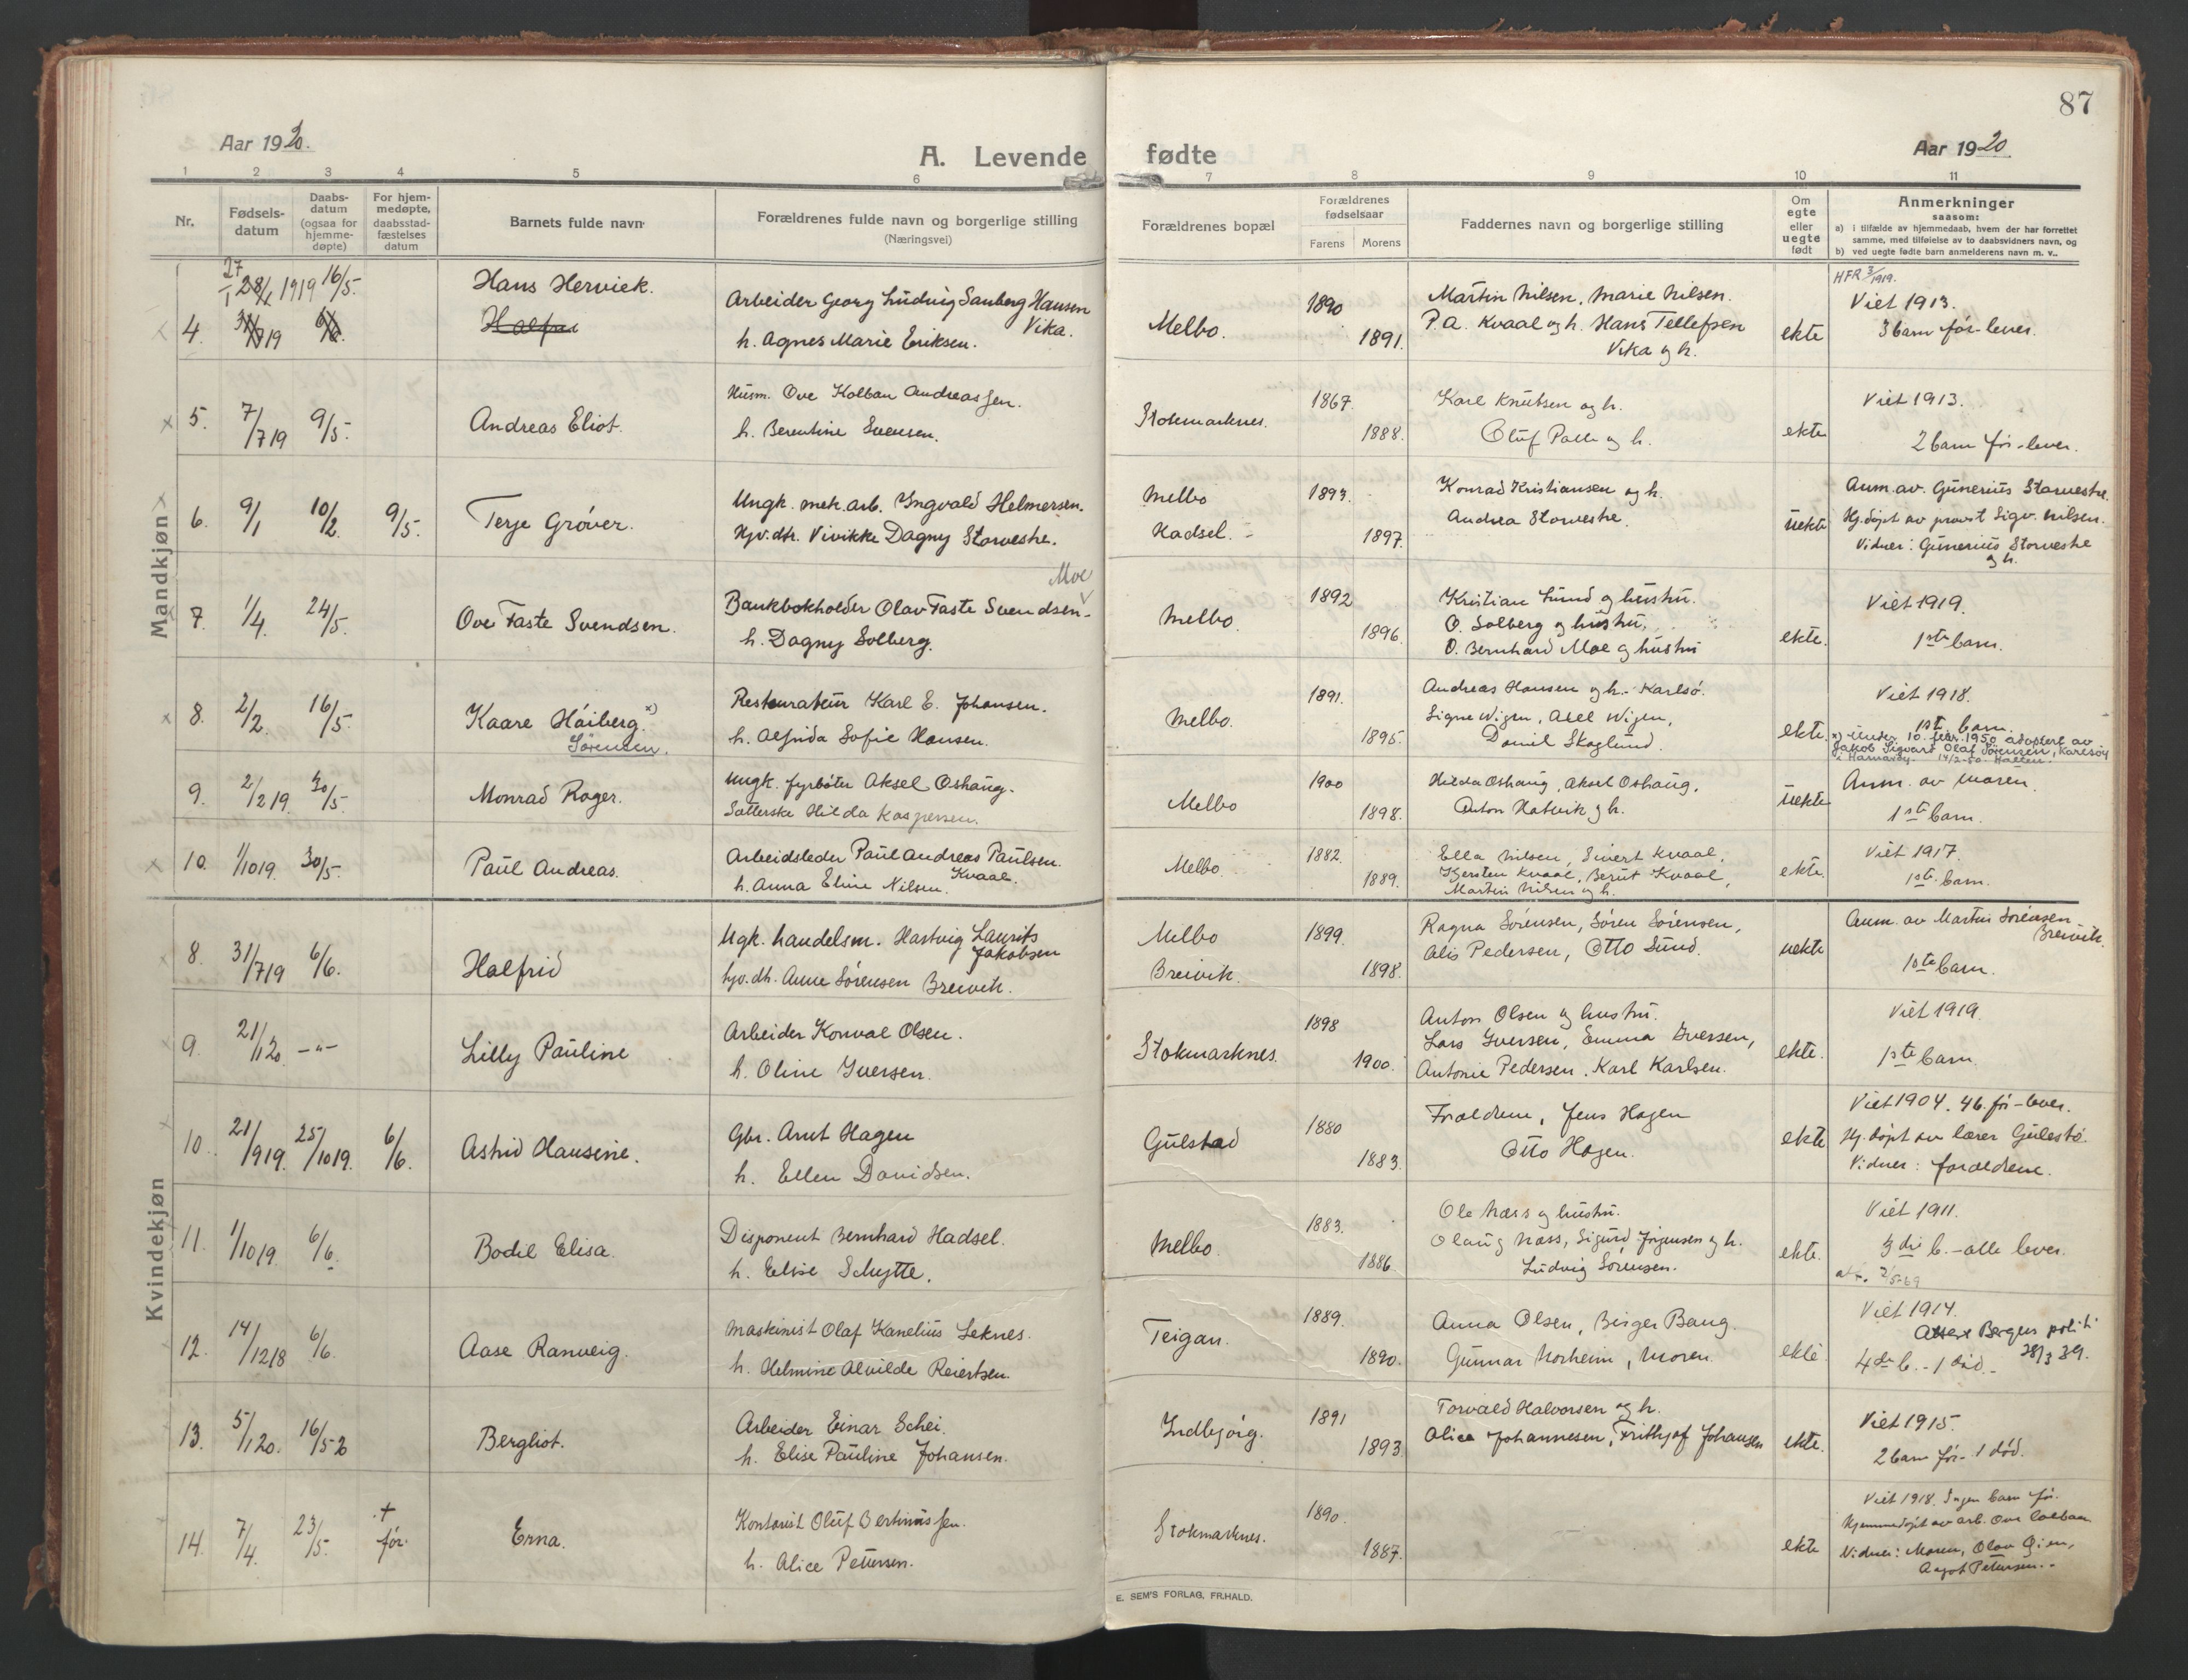 87
Aar 1920.
A. Levende fødte
Aar 1920
1 2 3 4 5 6 7 8 9 10 11
Nr.
Fødsels-
datum
Daabs-
datum
(ogsaa for
hjemme-
døpte)
For hjem-
medøpte,
daabsstad-
fæstelses
datum
Barnets fulde navn
Forældrenes fulde navn og borgerlige stilling
(Næringsvei)
Forældrenes bopæl
Forældrenes
fødselsaar
Farens Morens
Faddernes navn og borgerlige stilling
Om
egte
eller
uegte
født
Anmerkninger
saasom:
a) i tilfælde av hjemmedaab, hvem der har forrettet
samme, med tilføielse av to daabsvidners navn, og
b) ved uegte fødte barn anmelderens navn m. v..
Mandkjøn
4. 27/1 28/1 1919 16/5.
31/7 19 6/6.
Hans Herviek.
Halfrid
Arbeider Georg Ludvig Sanberg Hansen
Vika.
h. Agnes Marie Eriksen.
Melbo.
1890
1891.
Martin Nilsen, Marie Nilsen.
P.A. Kvaal og h. Hans Tellefsen
Vika og h.
ekte
HFR 3/1919.
Viet 1913.
3 barn før - lever.
5. 7/7 19 9/5.
Andreas Eliot.
Husm. Ove Kolban Andreassen.
h. Berentine Svensen.
Stokmarknes.
1867.
1888.
Karl Knutsen og h.
Oluf Palle og h.
ekte
Viet 1913.
2 barn før - lever.
6. 9/1 10/2. 9/5.
Terje Grøver.
Ungk. mek. arb. Yngvald Helmersen.
Hjv. dtr. Vivikke Dagny Storvestre.
Melbo
Hadsel.
1893.
1897.
Konrad Kristiansen og h.
Andrea Storvestre.
uekte
Anm. av. Gunerius Storvestre.
Hj. døpt av provst Sigv. Nilsen.
Vidner: Gunerius Storvestre
og h.
7. 1/4. 24/5.
Ove Taste Svendsen.
Moe
Bankbokholder Olav Taste Svendsen -
h. Dagny Solberg.
Melbo.
1892
1896.
Kristian Lund og hustru.
O. Solberg og hustru,
O. Bernhard Moe og hustru
ekte.
Viet 1919.
1ste barn.
8. 2/2. 16/5.
Kaare Háiberg x)
Sørensen.
Restauratør Karl E. Johansen.
h. Alfrida Sofie Hansen.
Melbo.
1891.
1895.
Andreas Hansen og h. - Karlsø.
Signe Wigen, Axel Wigen,
Daniel Skoglund.
ekte.
Viet 1918.
1ste barn.
x) under 10. febr. 1950 adoptert av
Jakob Sigvard Olaf Sørensen, Karlsøy
i Hamarøy. 14/2-50.
9. 2/2 19. 30/5.
Monrad Roger.
Ungk. fyrbøter Aksel Oshaug.
Hilda Kaspersen.
Melbo
1900
1898.
Hilda Oshaug, Aksel Oshaug,
Anton Hatvik og h.
uekte
Anm. av moren.
1ste barn.
10. 1/10 19. 30/5.
Paul Andreas.
Arbeidsleder Paul Andreas Paulsen.
Kvaal.
h. Anna Eline Nilsen.
Melbo.
1882.
1889.
Ella Nilsen, Sivert Kvaal,
Kjersten Kvaal, Berut Kvaal,
Martin Nilsen og h.
ekte.
Viet 1917.
1ste barn.
Kvindekjøn
8. 31/7 19 6/6.
Halfrid
Ugk. handelsm. Hartvig Laurits
Jakobsen
hjv. dt. Anne Sørensen Breivik.
Melbo
Breivik.
1899.
1898.
Ragna Sørensen, Søren Sørensen,
Alis Pedersen, Otto Sund.
uekte
Anm. av Martin Sørensen
Breivik.
1ste barn.
9. 21/1 20. -"-
Lilly Pauline
Arbeider Konval Olsen.
h. Oline Iversen.
Stokmarknes.
1898
1900.
Anton Olsen og hustru.
Lars Iversen, Emma Iversen,
Antonie Pedersen. Karl Karlsen.
ekte.
Viet 1919.
1ste barn.
10. 21/9 19. 25/10 19. 6/6.
Astrid Hansine.
Gbr. Arnt Hagen
h. Ellen Davidsen.
Gulstad
1880
1883.
Forældrene, Jens Hagen
Otto Hagen.
ekte
Viet 1904. 4 b. før - lever.
Hj. døpt av lærer Gulestø.
Vidner: forældrene.
11. 1/10 19. 6/6.
Bodil Elisa.
Disponent Bernhard Hadsel.
h. Elise Schytte.
Melbo.
1883.
1886
Ole Næss og hustru.
Olaug Næss, Sigurd Jørgensen og h.
Ludvig Sørensen.
ekte.
Viet 1911.
3die b. - alle lever.
att. 2/5-69
12. 14/12 18 6/6.
Aase Ranveig.
Maskinist Olaf Kanelius Leknes.
h. Helmine Alvilde Reiertsen.
Teigan.
1889.
1890.
Anna Olsen, Birger Bang.
Gunnar Norheim, Moren.
ekte.
Viet 1914.
Attest Bergens politi
28/3 39.
4de b. - 1 død. -
13. 5/1 20. 16/5-20
Bergliot.
Arbeider Einar Schei.
h. Elise Pauline Johansen.
Indbjørg.
1891
1893
Torvald Halvorsen og h.
Alice Johannesen, Frithjof Johansen
ekte.
Viet 1915.
2 barn før - 1 død.
14. 7/4. 23/5. + før.
Erna.
Kontorist Oluf Bertinussen.
h. Alice Pettersen.
Stokmarknes.
1890.
1887.
ekte
Viet 1918. Ingen barn før.
Hjemmedøpt av arb. Ove Colban
Vidner: Moren, Olav Gien,
Aagot Petersen. -
E. SEM'S FORLAG, FR.HALD.